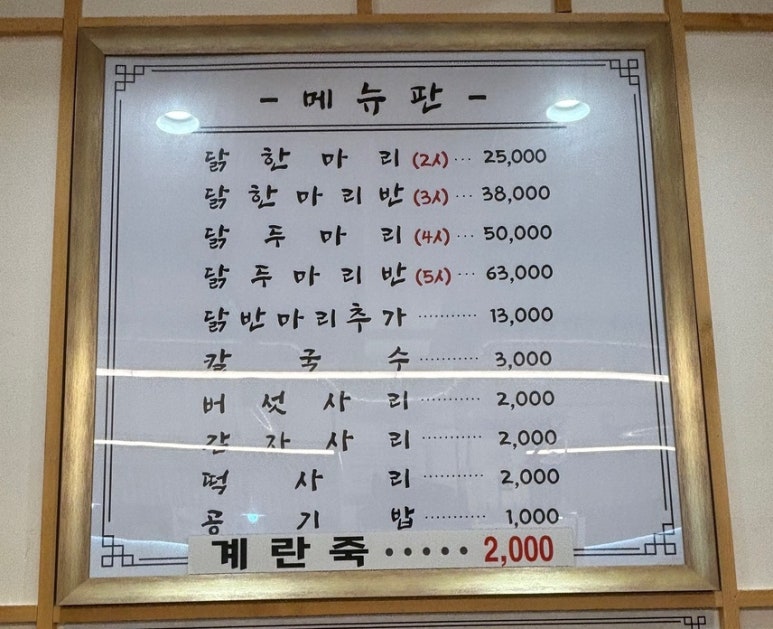 - 메뉴판 -
닭 한 마 리 (2人) ··· 25,000
닭 한 마 리 반 (3人) ··· 38,000
닭 두 마 리 (4人) ··· 50,000
닭 두 마 리 반 (5人) ··· 63,000
닭 반 마 리 추 가 ·········· 13,000
칼 국 수 ·········· 3,000
버 섯 사 리 ·········· 2,000
감 자 사 리 ·········· 2,000
떡 사 리 ·········· 2,000
공 기 밥 ·········· 1,000
계 란 죽 ····· 2,000